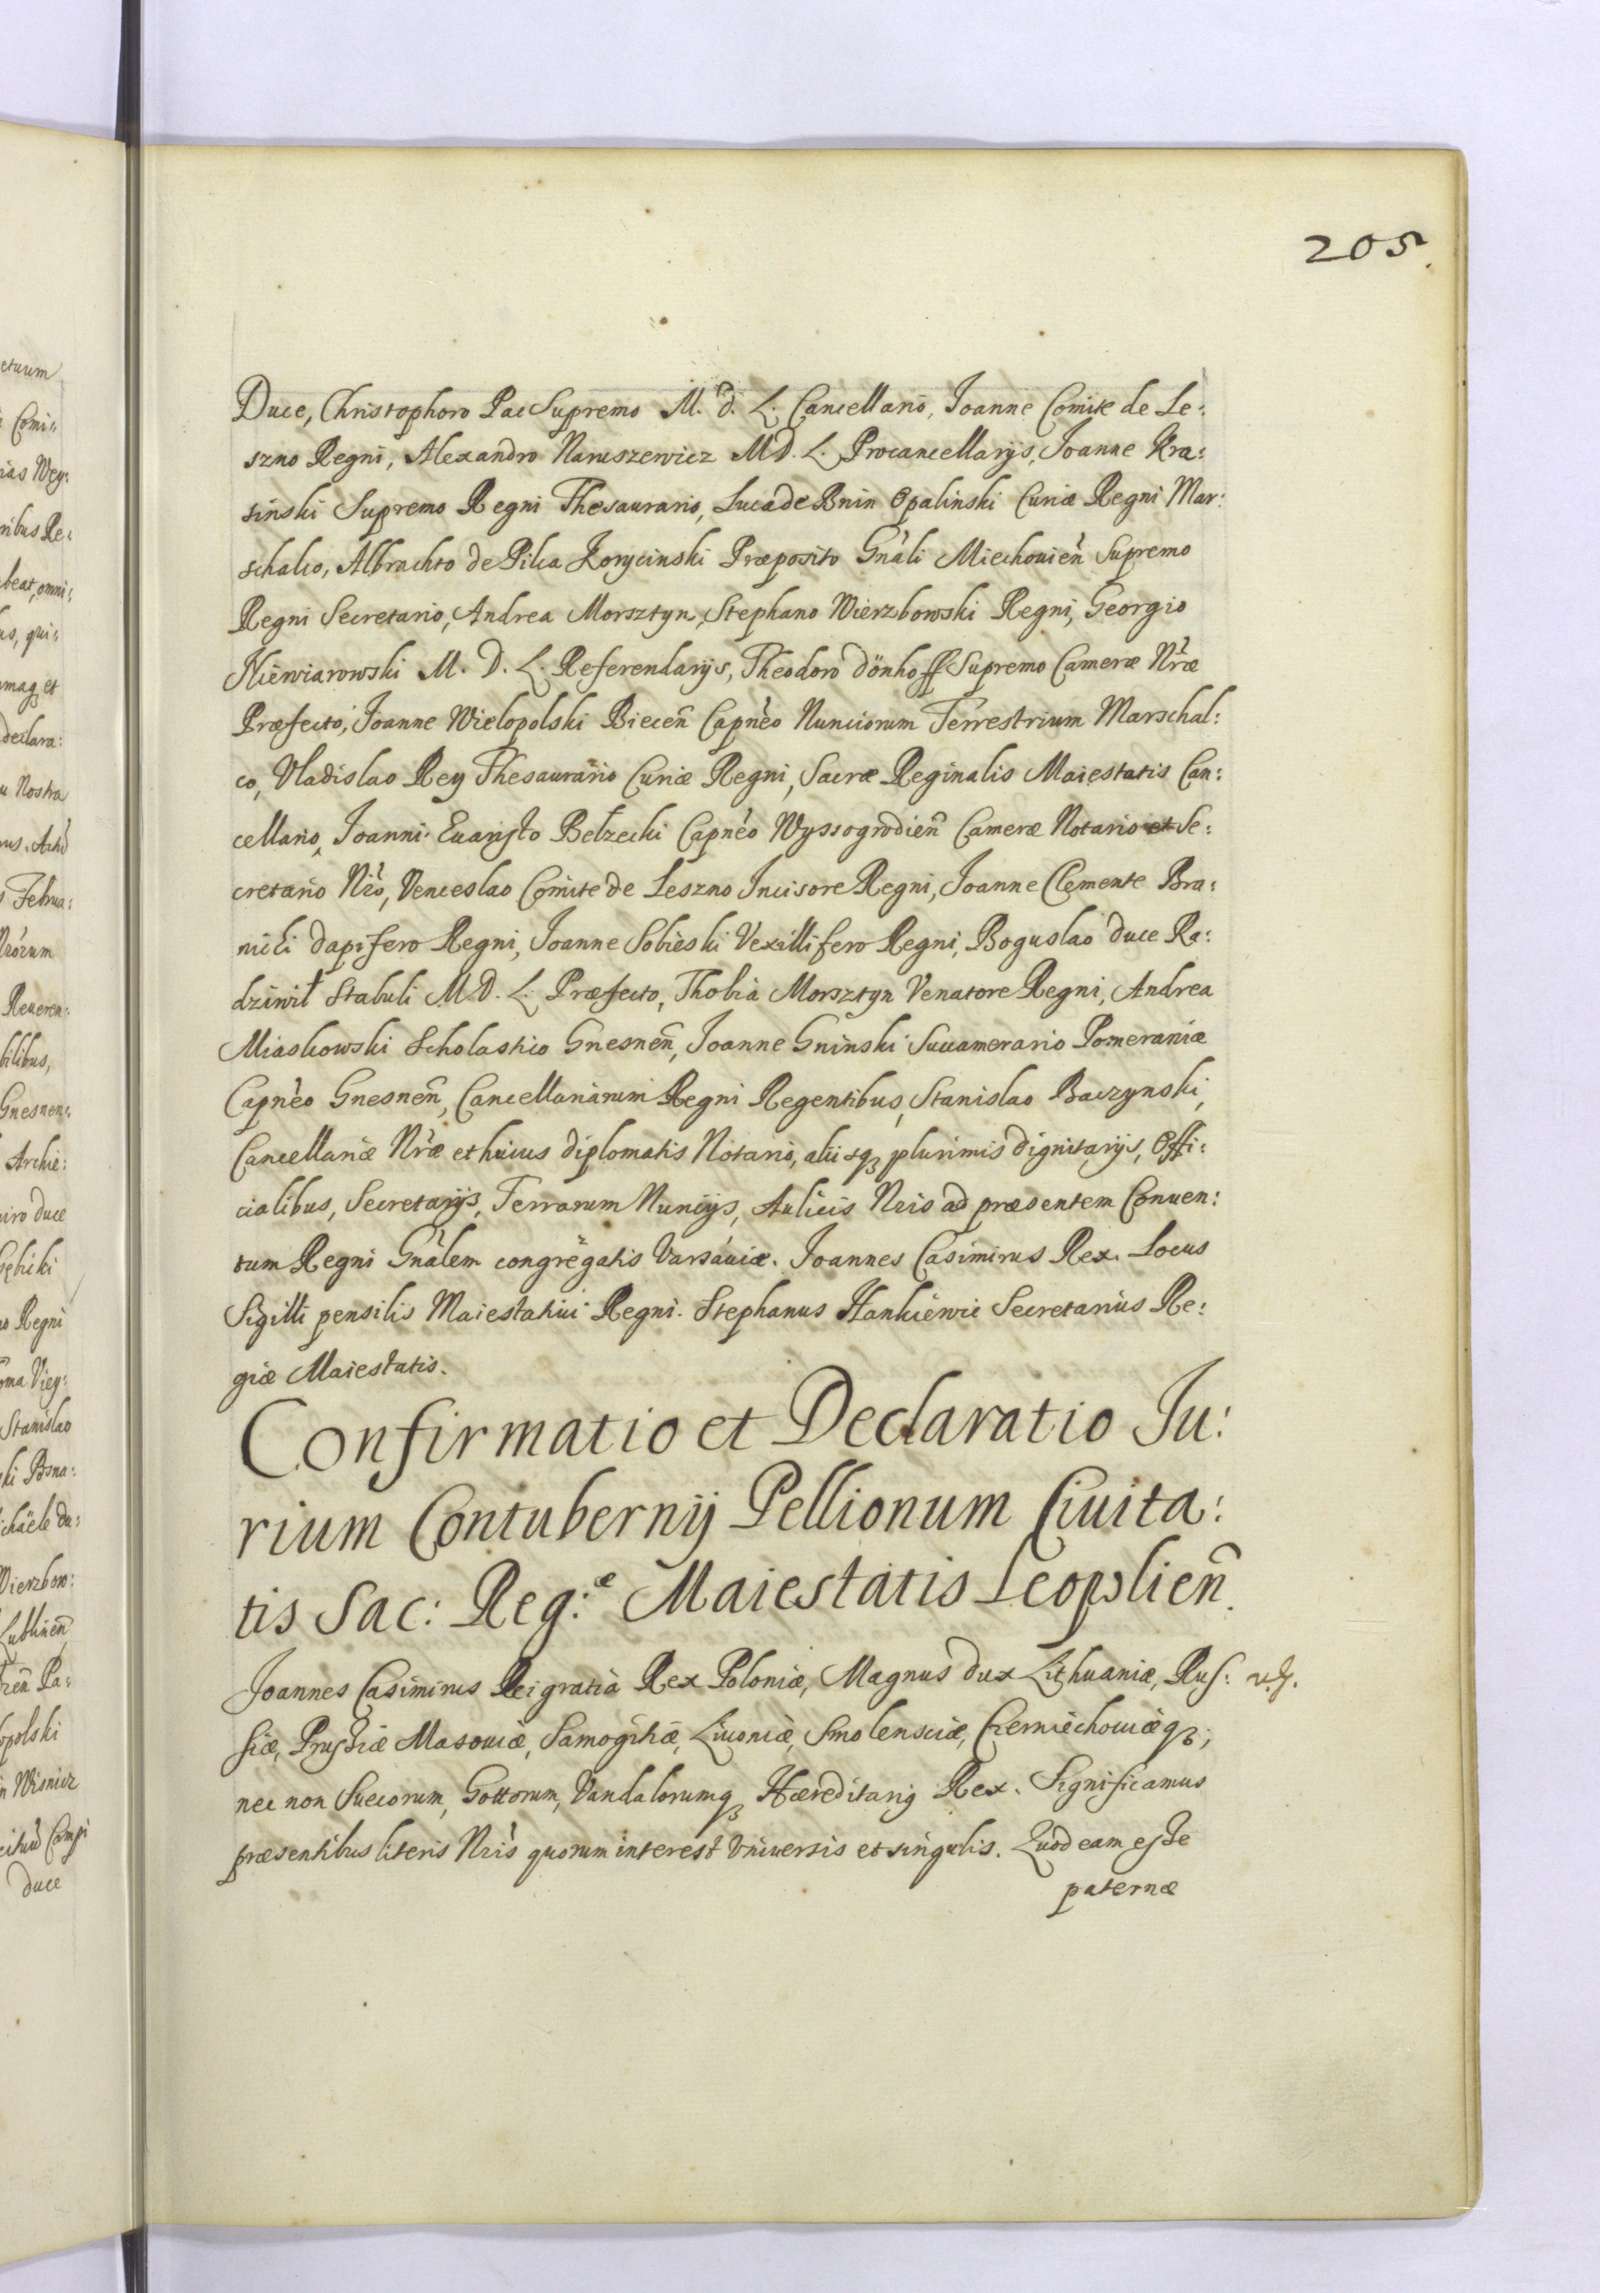 205.
Duce, Christophoro Pac Supremo M. D. L. Cancellario, Joanne Comite de Le:
szno Regni, Alexandro Naruszewicz MD. L. Procancellarijs, Joanne Kra:
sinski Supremo Regni Thesaurario, Luca de Bnin Opalinski Curiæ Regni Mar:
schalco, Albrachto de Pilca Korycinski Præposito Gnali Miechouien Supremo
Regni Secretario, Andrea Morsztyn, Stephano Wierzbowski Regni, Georgio
Niewiarowski M. D. L. Referendarijs, Theodoro Dönhoff Supremo Cameræ Nræ
Præfecto, Joanne Wielopolski Biecen Capneo Nunciorum Terrestrium Marschal:
co, Vladislao Rey Thesaurario Curiæ Regni, Sacræ Reginalis Maiestatis Can:
cellario, Joanni Euaristo Bełzecki Capneo Wyssogrodien Cameræ Notario et Se:
cretario Nro, Venceslao Comite de Leszno Incisore Regni, Joanne Clemente Bra:
nicki Dapifero Regni, Joanne Sobieski Vexillifero Regni, Boguslao Duce Ra:
dziwił Stabuli M.D. L. Præfecto, Thobia Morsztyn Venatore Regni, Andrea
Miaskowski Scholastico Gnesnen, Joanne Gninski Succamerario Pomeraniæ
Capneo Gnesnen, Cancellariarum Regni Regentibus, Stanislao Baczynski,
Cancellariæ Nræ et huius diplomatis Notario, alijsq plurimis dignitarijs, Offi:
cialibus, Secretarijs, Terrarum Nuncijs, Aulicis Nris ad præsentem Conuen:
tum Regni Gnalem congregatis Varsauiæ. Joannes Casimirus Rex. Locus
Sigilli pensilis Maiestatiui Regni. Stephanus Hankiewic Secretarius Re:
giæ Maiestatis.
Confirmatio et Declaratio Ju:
rium Contubernij Pellionum Ciuita:
tis Sac: Reg:e Maiestatis Leopolien.
Joannes Casimirus Dei gratia Rex Poloniæ, Magnus Dux Lithuaniæ, Rus:
siæ, Prussiæ Masouiæ, Samogitiæ, Liuoniæ, Smolensciæ, Czerniechouiæq;
nec non Suecorum, Gottorum, Vandalorumq Hæreditarij Rex. Significamus
præsentibus literis Nris quorum interest Vniuersis et singulis. Quod eam esse
paternæ